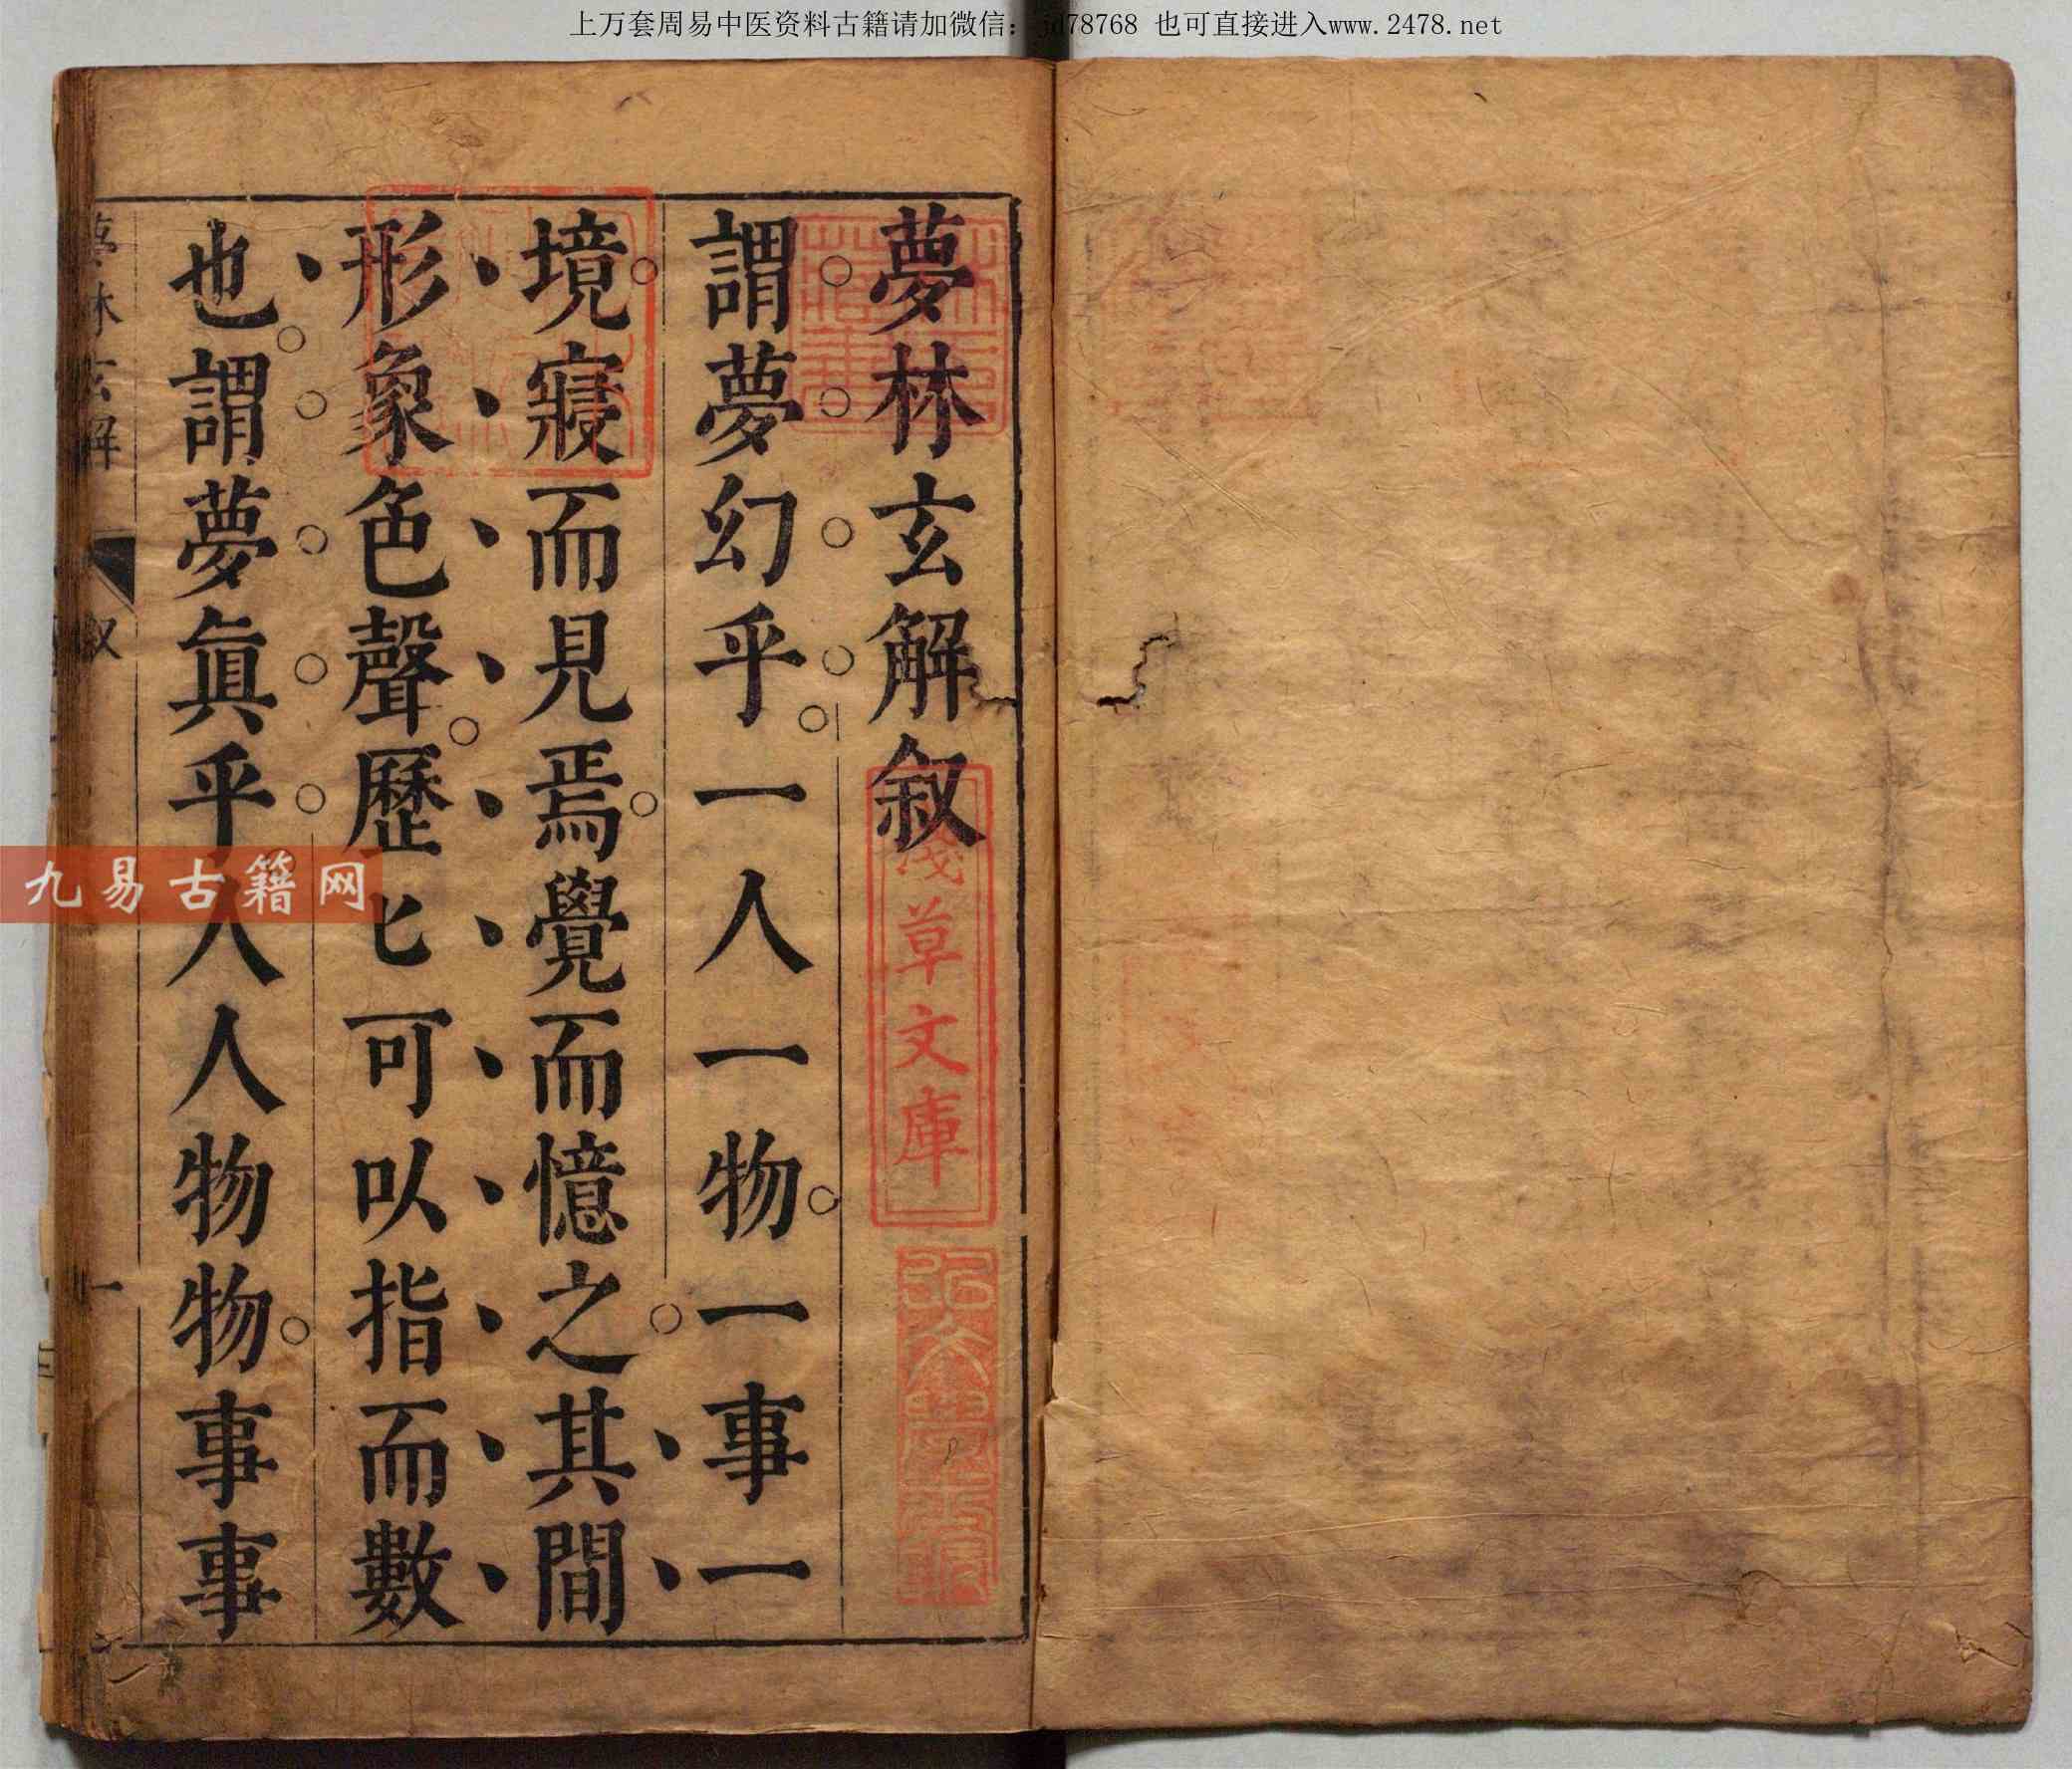 上万套周易中医资料古籍请加微信：jd78768 也可直接进入www.2478.net
夢林玄解叙
謂夢幻乎一人一物一事一
境寢而見焉覺而憶之其間
形象色聲歷匕可以指而數
也謂夢眞乎人人物物事事
夢林玄解
叙
一
淺草文庫
九易古籍网